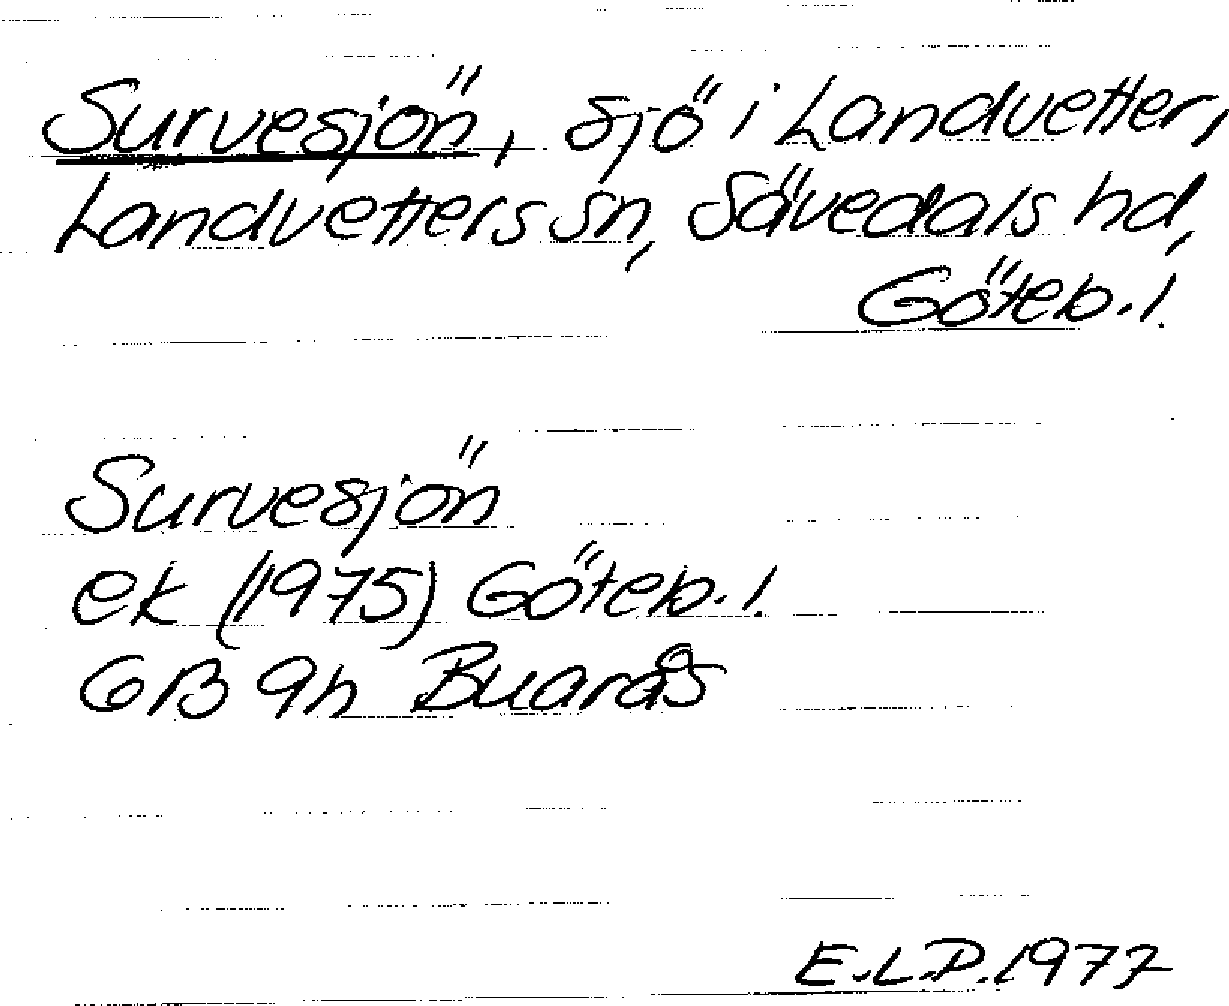 Survesjön, sjö i Landvetter,
Landvetters sn, Sävedals hd,
Göteb. l.
Survesjön
ek (1975) Göteb. l.
6B 9h Buarås
E.L.P. 1977